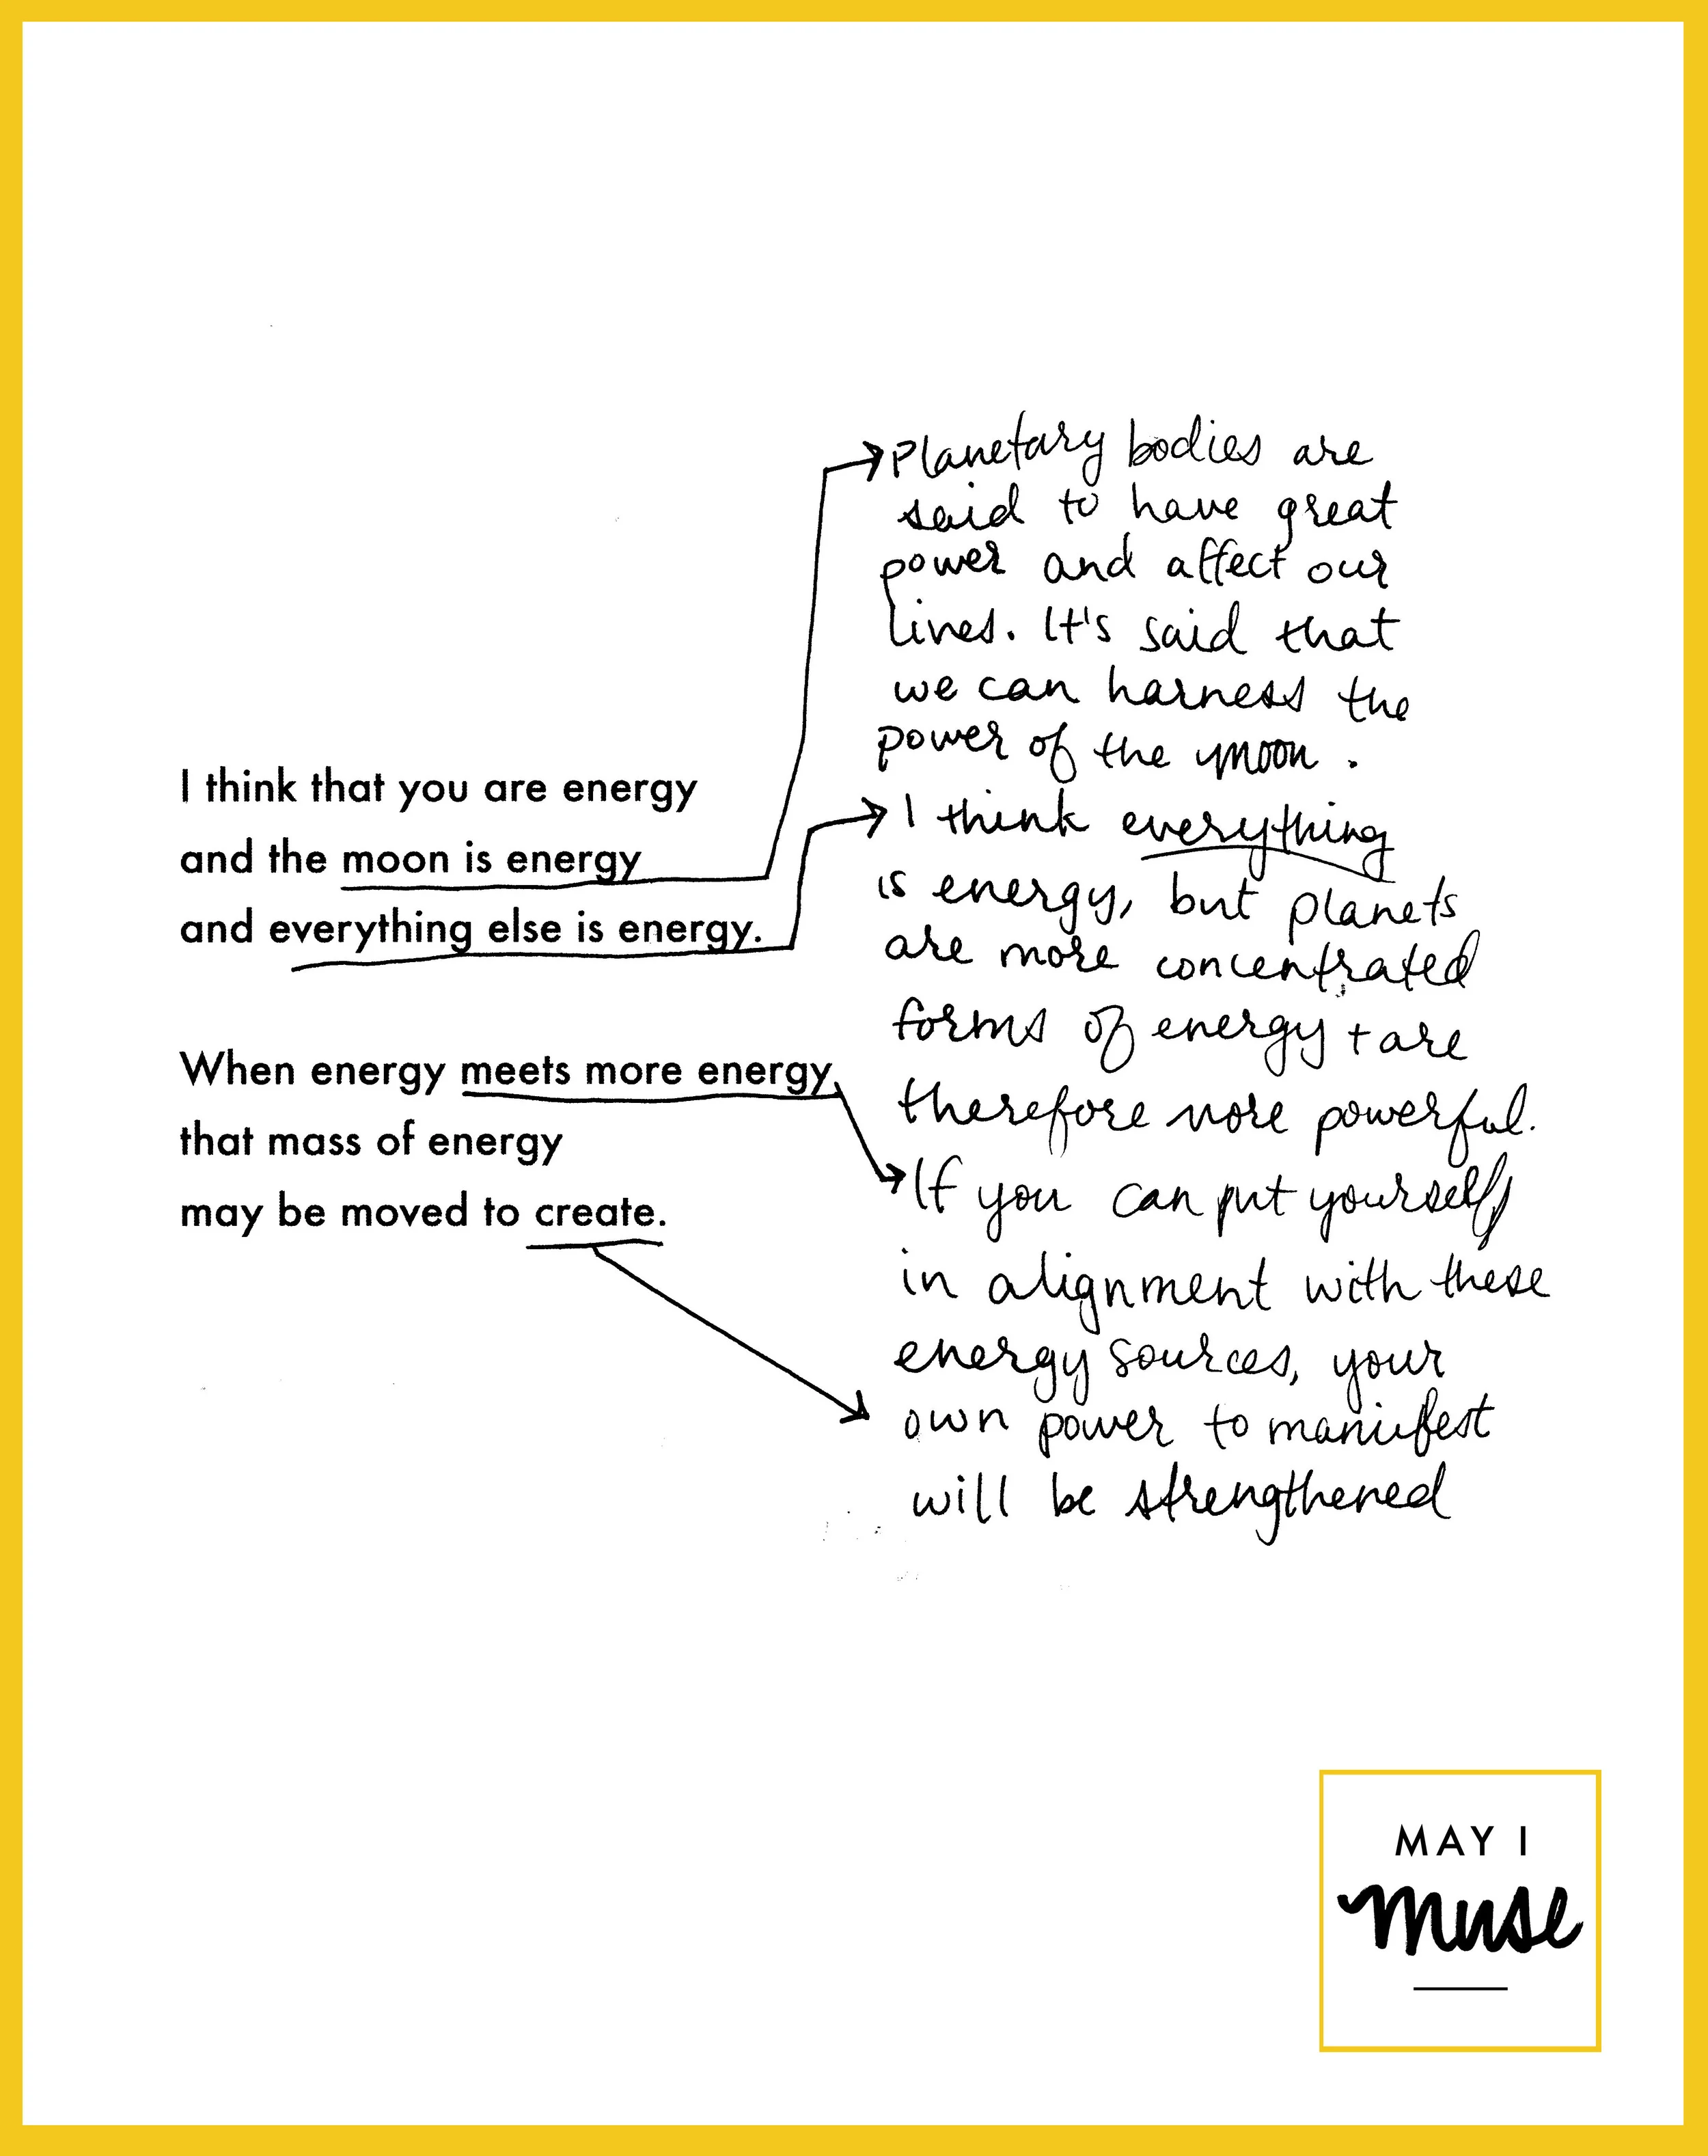 I think that you are energy
and the moon is energy
and everything else is energy.
When energy meets more energy,
that mass of energy
may be moved to create.
Planetary bodies are
said to have great
power and affect our
lives. It's said that
we can harness the
power of the moon.
I think everything
is energy, but planets
are more concentrated
forms of energy + are
therefore more powerful.
If you can put yourself
in alignment with these
energy sources, your
own power to manifest
will be strengthened
MAY I
muse